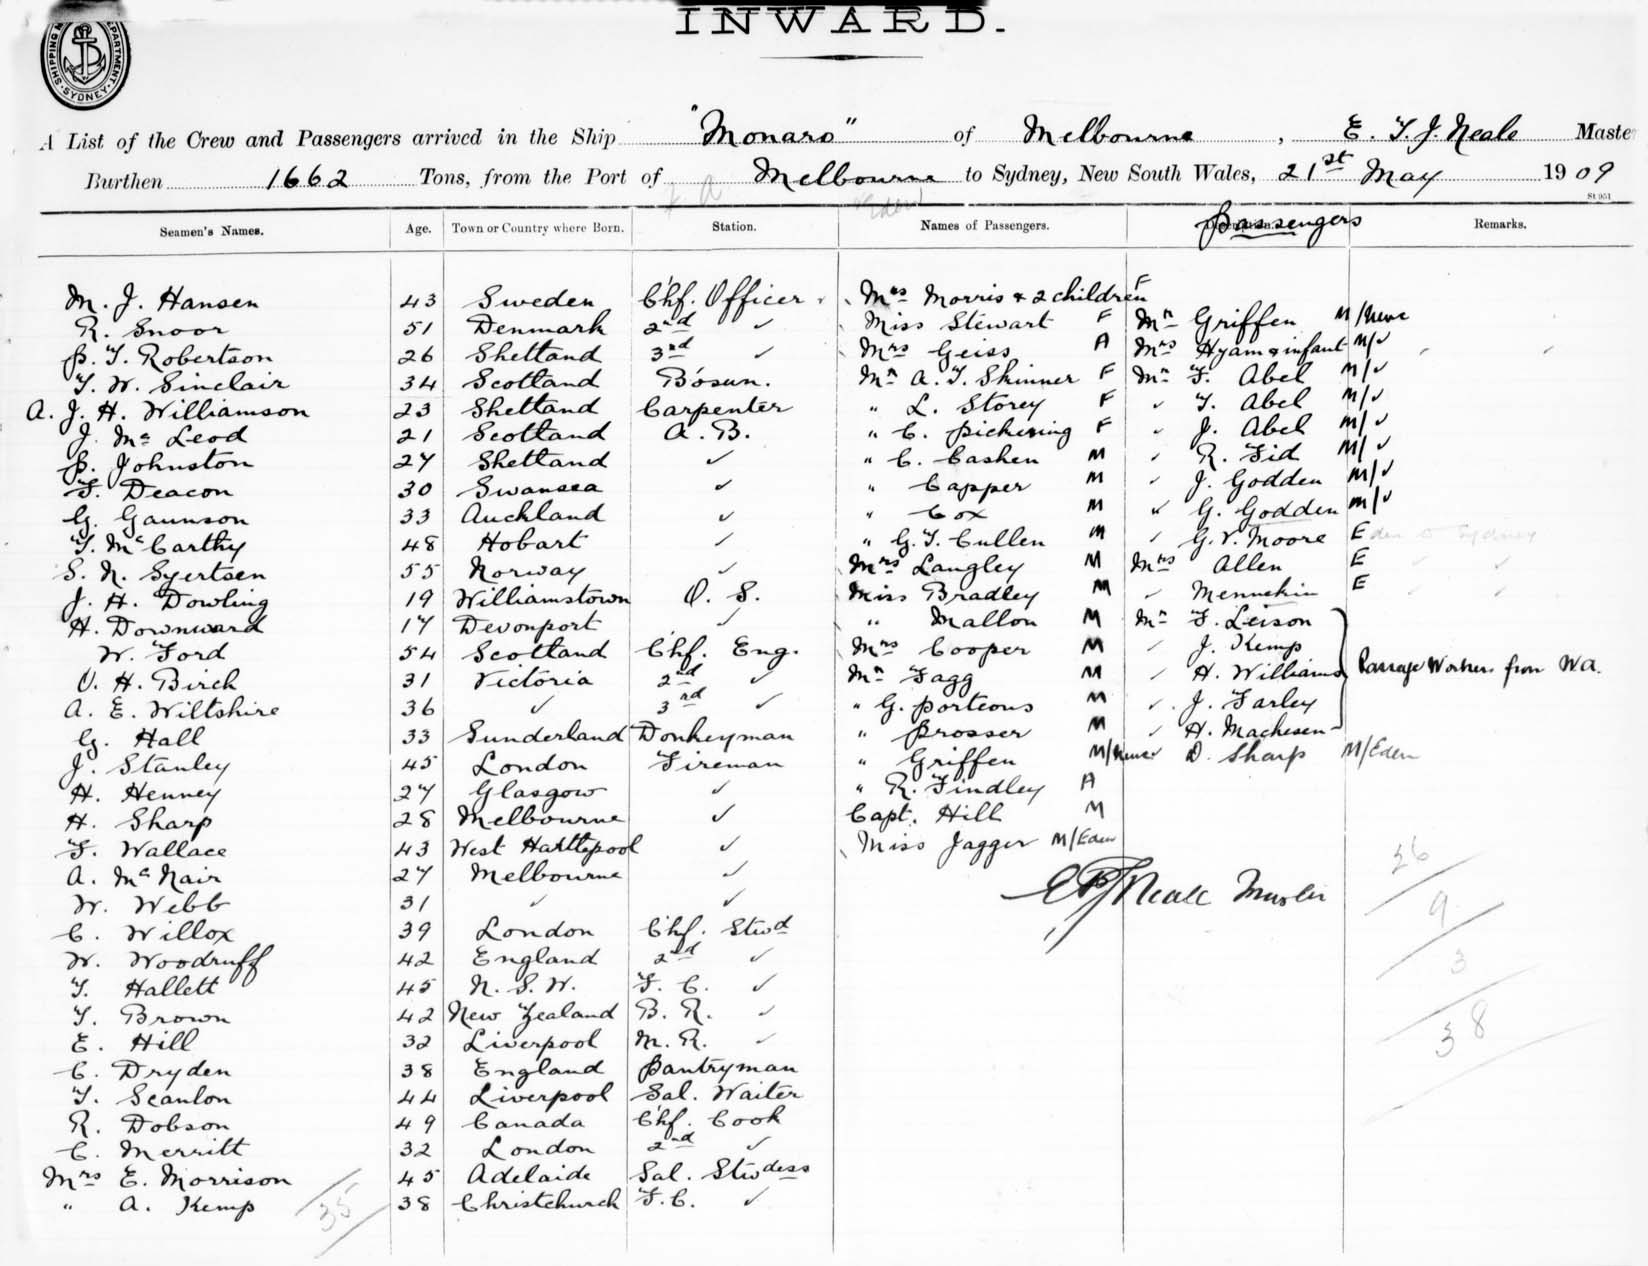 INWARD.
SHIPPING DEPARTMENT. SYDNEY
A List of the Crew and Passengers arrived in the Ship "Monaro" of Melbourne, E. T. J. Neale Maste
Burthen 1662 Tons, from the Port of Melbourne to Sydney, New South Wales, 21st May 1909
St 951
Seamen's Names. Age. Town or Country where Born. Station. Names of Passengers. Passengers Remarks.
M. J. Hansen 43 Sweden Chf. Officer Mrs Morris & 2 children F
R. Snoor 51 Denmark 2nd ✓ Miss Stewart F Mr Griffen M/
P. T. Robertson 26 Shetland 3rd ✓ Mrs Geiss A Mrs Hyam & infant M/✓
T. W. Sinclair 34 Scotland Bosun. Mr A. T. Skinner F Mr F. Abel M/✓
A. J. H. Williamson 23 Shetland Carpenter " L. Storey F ✓ T. Abel M/✓
J. Mc Leod 21 Scotland A. B. " C. Pickering F ✓ J. Abel M/✓
P. Johnston 27 Shetland ✓ " C. Cashen M ✓ R. Fid M/✓
F. Deacon 30 Swansea ✓ " Capper M ✓ J. Godden M/✓
G. Gaunson 33 Auckland ✓ " Cox M ✓ G. Godden M/✓
T. McCarthy 48 Hobart ✓ " G. T. Cullen M ✓ G. V. Moore Eden to Sydney
S. N. Syertsen 55 Norway ✓ Mrs Langley M Mrs Allen E
J. H. Dowling 19 Williamstown O. S. Miss Bradley M ✓ Mennekin E
H. Downward 17 Devonport ✓ " Mallon M Mr F. Leison
W. Ford 54 Scotland Chf. Eng. Mrs Cooper M ✓ J. Kemp
O. H. Birch 31 Victoria 2nd ✓ Mr Fagg M ✓ H. Williams Passage Workers from W.A.
A. E. Wiltshire 36 ✓ 3rd ✓ " G. Porteous M ✓ J. Farley
G. Hall 33 Sunderland Donkeyman " Prosser M ✓ H. Machesen
J. Stanley 45 London Fireman " Griffen M/ ✓ D. Sharp M/Eden
H. Henney 27 Glasgow ✓ " R. Findley A
H. Sharp 28 Melbourne ✓ Capt. Hill M
F. Wallace 43 West Hartlepool ✓ Miss Jagger M/Eden
A. McNair 27 Melbourne ✓
W. Webb 31 ✓ ✓ E T J Neale Master
C. Willox 39 London Chf. Stwd
W. Woodruff 42 England 2nd ✓
T. Hallett 45 N. S. W. F. C. ✓
T. Brown 42 New Zealand B. R. ✓
E. Hill 32 Liverpool M. R. ✓
C. Dryden 38 England Pantryman
T. Scanlon 44 Liverpool Sal. Waiter
R. Dobson 49 Canada Chf. Cook
C. Merritt 32 London 2nd ✓
Mrs E. Morrison 45 Adelaide Sal. Stwdess
" A. Kemp 38 Christchurch F. C. ✓
35
26
9
3
38